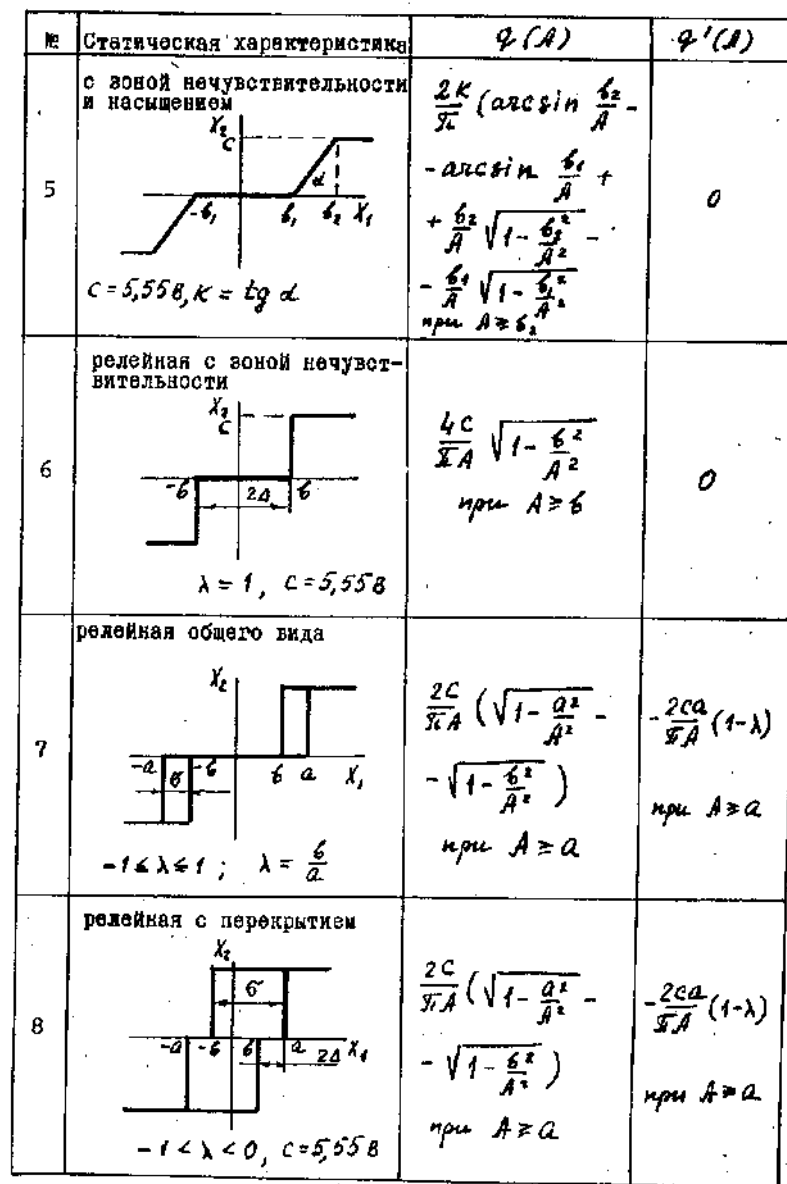 № Статическая характеристика q(A) q'(A)
5
с зоной нечувствительности
и насыщением
X₂
C
-b₁ b₁ b₂ X₁
α
C = 5,55 В, K = tg α
2K/π (arcsin b₂/A -
- arcsin b₁/A +
+ b₂/A √(1 - b₂²/A²) -
- b₁/A √(1 - b₁²/A²)
при A ≥ b₂
0
6
релейная с зоной нечувст-
вительности
X₂
C
-b 2Δ b
λ = 1, C = 5,55 В
4C/πA √(1 - b²/A²)
при A ≥ b
0
7
релейная общего вида
X₂
-a -b b a X₁
σ
-1 ≤ λ ≤ 1; λ = b/a
2C/πA (√(1 - a²/A²) -
- √(1 - b²/A²))
при A ≥ a
-2Ca/πA (1-λ)
при A ≥ a
8
релейная с перекрытием
X₂
σ
-a -b b a 2Δ X₁
-1 < λ < 0, C = 5,55 В
2C/πA (√(1 - a²/A²) -
- √(1 - b²/A²))
при A ≥ a
-2Ca/πA (1-λ)
при A ≥ a